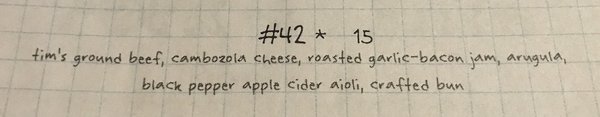 #42 * 15
tim's ground beef, cambozola cheese, roasted garlic-bacon jam, arugula,
black pepper apple cider aioli, crafted bun